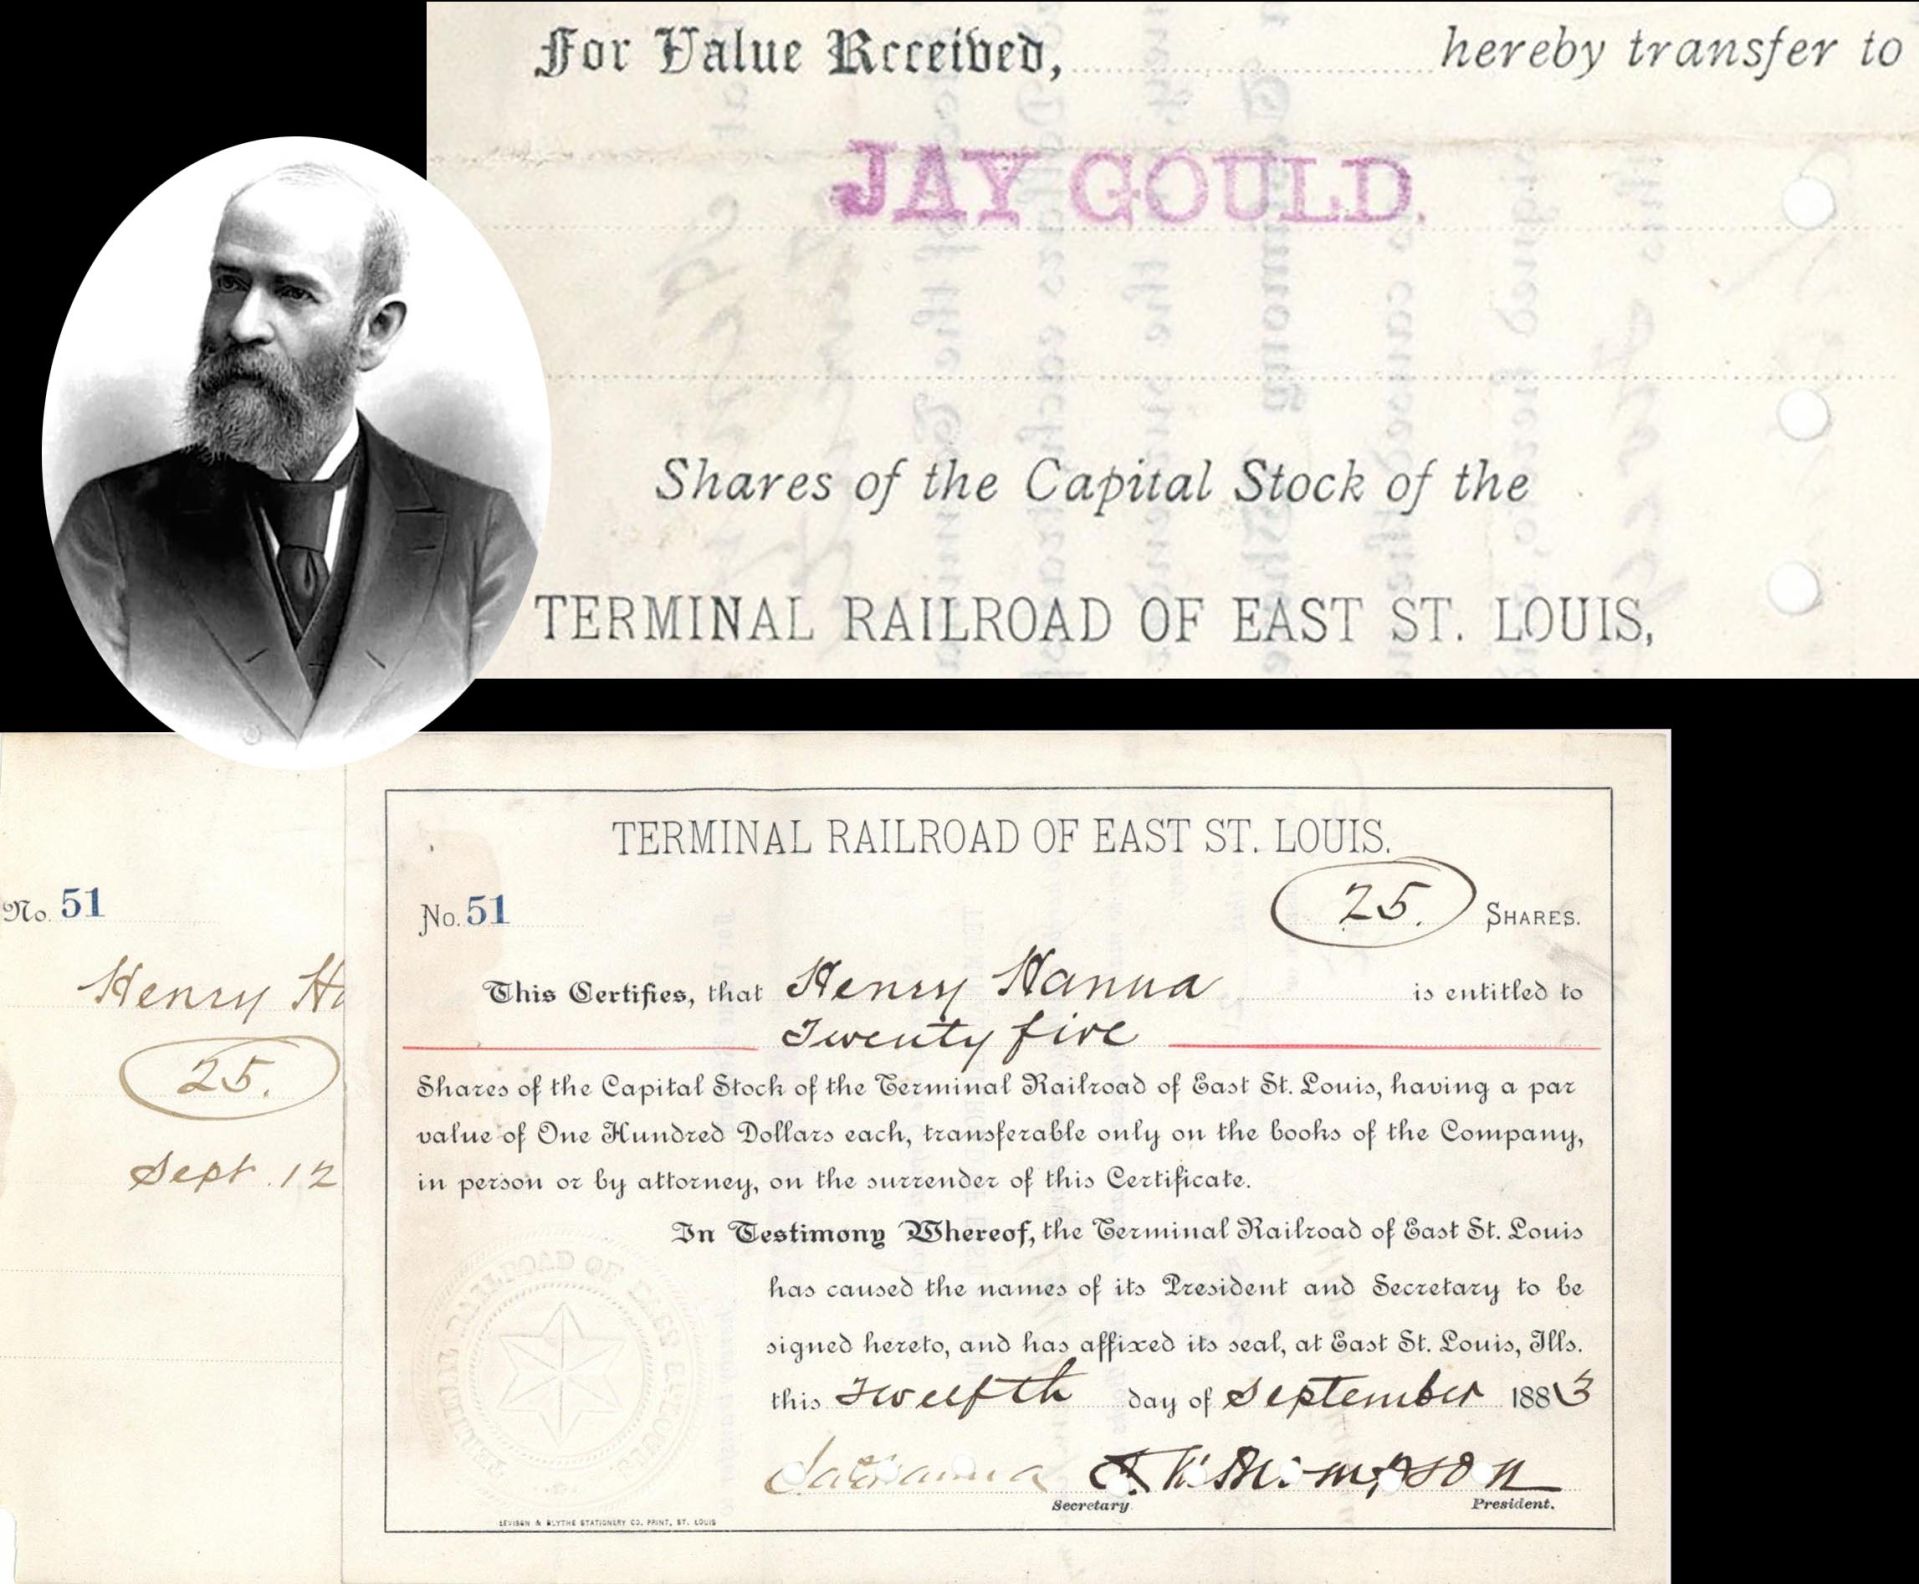 For Value Received, hereby transfer to
JAY GOULD.
Shares of the Capital Stock of the
TERMINAL RAILROAD OF EAST ST. LOUIS,
No. 51
Henry Ha
25.
Sept. 12
TERMINAL RAILROAD OF EAST ST. LOUIS.
No. 51 25. SHARES.
This Certifies, that Henry Hanna is entitled to
Twenty five
Shares of the Capital Stock of the Terminal Railroad of East St. Louis, having a par
value of One Hundred Dollars each, transferable only on the books of the Company,
in person or by attorney, on the surrender of this Certificate.
In Testimony Whereof, the Terminal Railroad of East St. Louis
has caused the names of its President and Secretary to be
signed hereto, and has affixed its seal, at East St. Louis, Ills.
this Twelfth day of September 1883
Thompson
Secretary. President.
LEVISON & BLYTHE STATIONERY CO. PRINT, ST. LOUIS
RAILROAD OF EAST ST. LOUIS